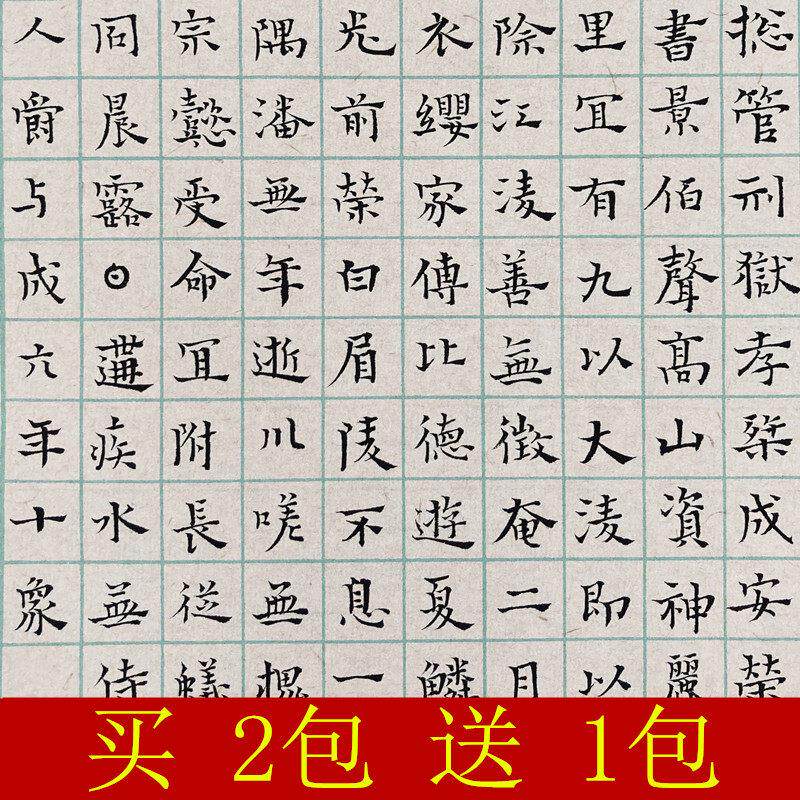 捴管刑獄孝成安荣
書景伯聲髙山資神麗
里冝有九以大淩即以
除江淩善無徵奄二月
衣纓家傳比德遊夏鱗
光前荣白眉陵不息一
隅潘無年逝川嗟無槐
宗懿受命冝附長從蟻
同晨露遘疾水無侍
人爵与成六年十象
买 2包 送 1包